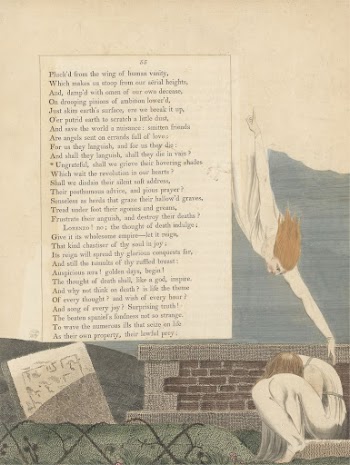 53
Pluck'd from the wing of human vanity,
Which makes us stoop from our aerial heights,
And, damp'd with omen of our own decease,
On drooping pinions of ambition lower'd,
Just skim earth's surface, ere we break it up,
O'er putrid earth to scratch a little dust,
And save the world a nuisance: smitten friends
Are angels sent on errands full of love;
For us they languish, and for us they die:
And shall they languish, shall they die in vain?
Ungrateful, shall we grieve their hovering shades
Which wait the revolution in our hearts?
Shall we disdain their silent soft address,
Their posthumous advice, and pious prayer?
Senseless as herds that graze their hallow'd graves,
Tread under foot their agonies and groans,
Frustrate their anguish, and destroy their deaths?
Lorenzo! no; the thought of death indulge;
Give it its wholesome empire—let it reign,
That kind chastiser of thy soul in joy;
Its reign will spread thy glorious conquests far,
And still the tumults of thy ruffled breast:
Auspicious aera! golden days, begin!
The thought of death shall, like a god, inspire.
And why not think on death? is life the theme
Of every thought? and wish of every hour?
And song of every joy? Surprising truth!
The beaten spaniel's fondness not so strange.
To wave the numerous ills that seize on life
As their own property, their lawful prey;